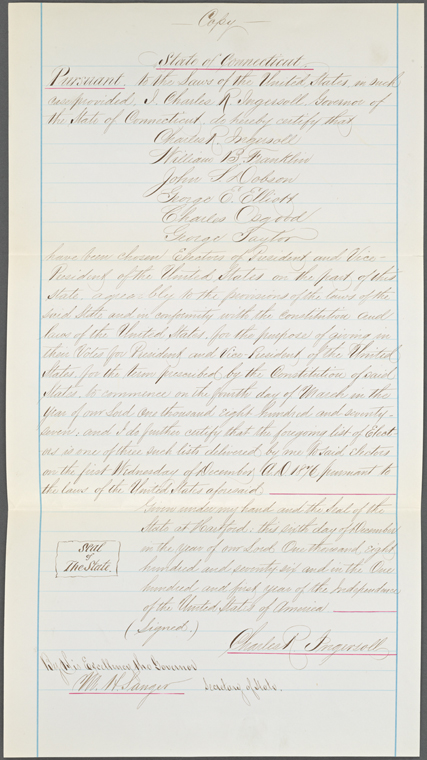 — Copy —
State of Connecticut.
Pursuant to the Laws of the United States, in such
case provided, I, Charles R. Ingersoll, Governor of
the State of Connecticut, do hereby certify that
Charles R. Ingersoll
William B. Franklin
John S. Dobson
George E. Elliott
Charles Osgood
George Taylor
have been chosen Electors of President and Vice-
President of the United States on the part of this
State, agreeably to the provisions of the laws of the
said State and in conformity with the Constitution and
laws of the United States, for the purpose of giving in
their Votes for President and Vice-President of the United
States, for the term prescribed by the Constitution of said
States, to commence on the fourth day of March in the
year of our Lord One thousand eight hundred and seventy-
seven; and I do further certify that the foregoing list of Elect-
ors is one of three such lists delivered by me to said Electors
on the first Wednesday of December A.D. 1876 pursuant to
the laws of the United States aforesaid.
Given under my hand and the Seal of the
State at Hartford, this sixth day of December
in the year of our Lord One thousand eight
hundred and seventy six and in the One
hundred and first year of the Independence
of the United States of America
Seal
of
The State
(Signed.)
Charles R. Ingersoll
By His Excellency the Governor
Secretary of State.